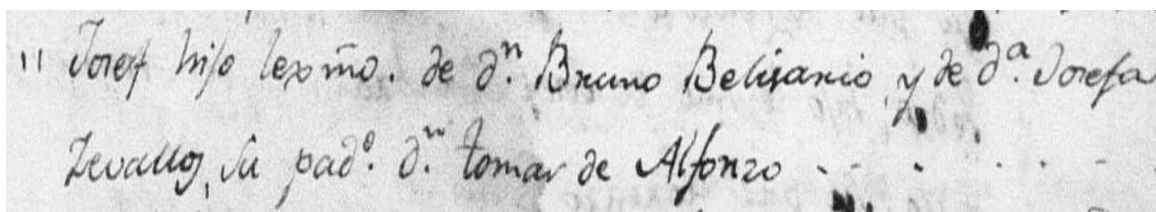 " Josef hijo lexmo. de dn. Bruno Belisario y de da. Josefa
Zevallos, su pado. dn. tomas de Alfonzo - - - - -